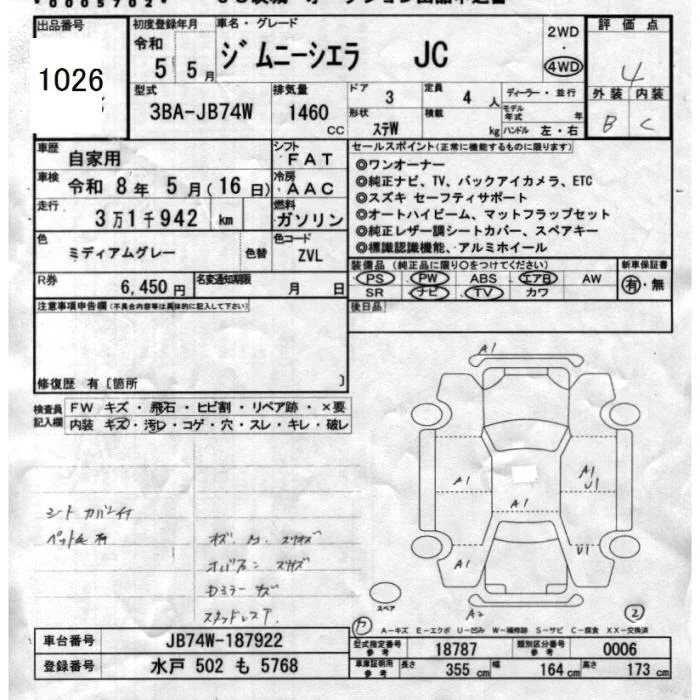 *0005702*
出品番号
1026
初度登録年月
令和
5 5月
車名・グレード
ジムニーシエラ JC
2WD
・
4WD
評価点
4
外装 内装
B C
型式
3BA-JB74W
排気量
1460
CC
ドア
3
定員
4 人
形状
ステW
積載
kg
ディーラー・並行
モデル年式 年
ハンドル 左・右
車歴
自家用
シフト
FAT
車検
令和 8年 5月(16日)
冷房
AAC
走行
3万1千942 km
燃料
ガソリン
色
ミディアムグレー
色替
色コード
ZVL
R券
6,450円
名変通知期限
月 日
セールスポイント(正常に機能するものに限ります)
◎ワンオーナー
◎純正ナビ、TV、バックアイカメラ、ETC
◎スズキ セーフティサポート
◎オートハイビーム、マットフラップセット
◎純正レザー調シートカバー、スペアキー
◎標識認識機能、アルミホイール
装備品(純正品に限り○をつけてください)
新車保証書
PS PW ABS エアB AW
SR ナビ TV カワ
有・無
後日品
注意事項申告欄(不具合内容等は具体的に記入して下さい)
修復歴 有〔箇所 〕
検査員
記入欄
FW キズ・飛石・ヒビ割・リペア跡・×要
内装 キズ・汚レ・コゲ・穴・スレ・キレ・破レ
シートカバー付
ペット毛有
スタッドレスT
A1
A1
A1
U1
A1
A1
A1
U1
A2
スペア
ワ
2
A-キズ E-エクボ U-凹み W-補修跡 S-サビ C-腐食 XX-交換済
車台番号
JB74W-187922
登録番号
水戸 502 も 5768
型式指定番号
参考
18787
類別区分番号
参考
0006
車庫証明用
参考
長さ
355 cm
幅
164 cm
高さ
173 cm